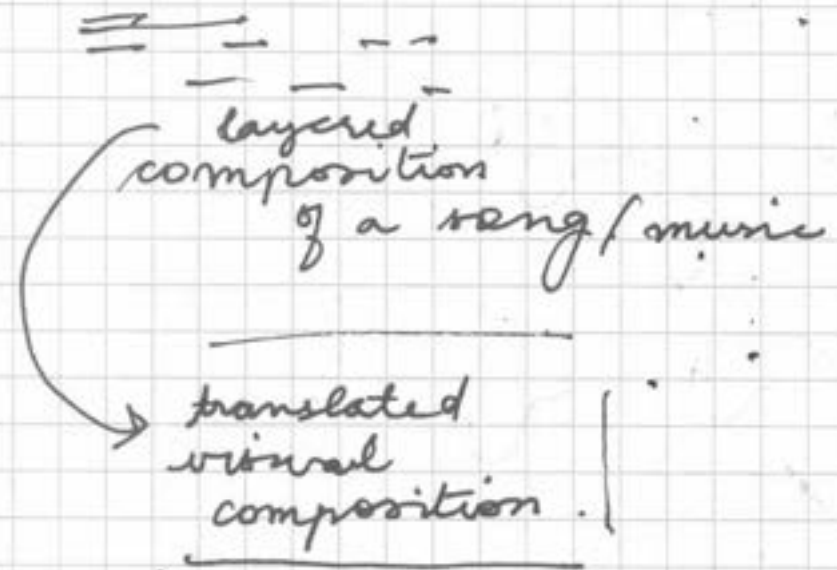 layered
composition
of a song/music
translated
visual
composition.